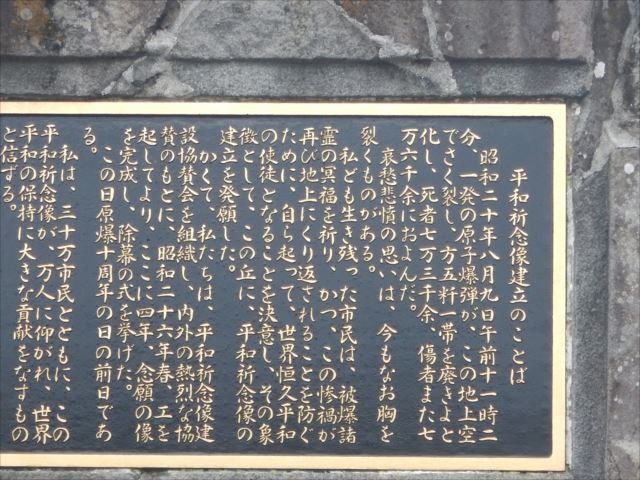 平和祈念像建立のことば
昭和二十年八月九日午前十一時二
分、一発の原子爆弾が、この地上空
でさく裂し、方五粁一帯を廃きよと
化し、死者七万三千余、傷者また七
万六千余におよんだ。
哀愁悲憤の思いは、今もなお胸を
裂くものがある。
私ども生き残った市民は、被爆諸
霊の冥福を祈り、かつ、この惨禍が
再び地上にくり返されることを防ぐ
ために、自ら起って、世界恒久平和
の使徒となることを決意し、その象
徴として、この丘に、平和祈念像の
建立を発願した。
かくて、私たちは、平和祈念像建
設協賛会を組織し、内外の熱烈な協
賛のもとに、昭和二十六年春、工を
起してより、ここに四年、念願の像
を完成し、除幕の式を挙げた。
この日原爆十周年の日の前日であ
る。
私は、三十万市民とともに、この
平和祈念像が、万人に仰がれ、世界
平和の保持に大きな貢献をなすもの
と信ずる。